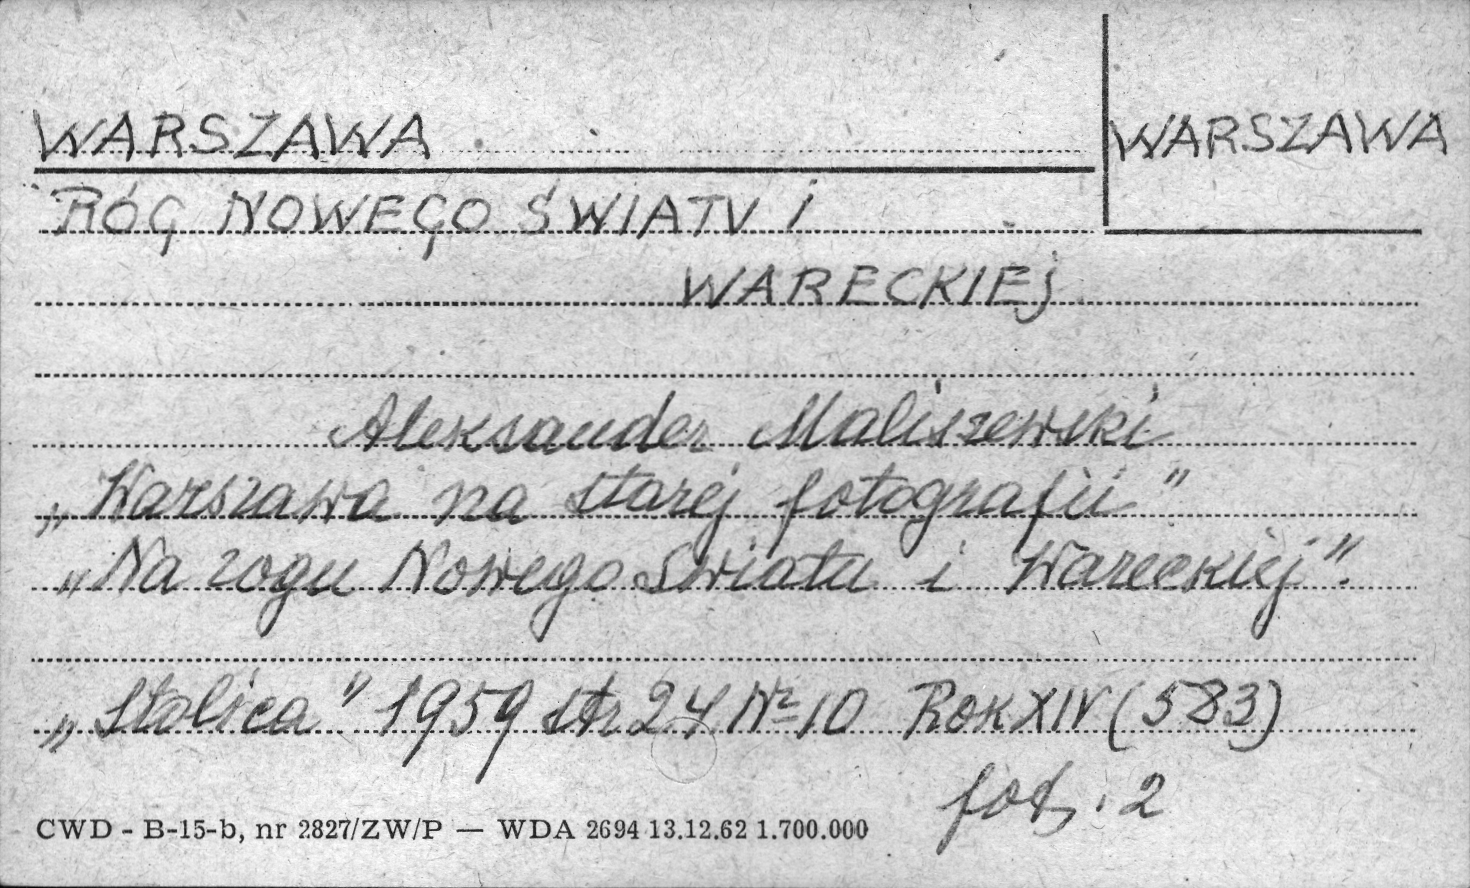 WARSZAWA
WARSZAWA
RÓG NOWEGO ŚWIATU i
WARECKIEj
Aleksander Maliszewski
„Warszawa na starej fotografii"
„Na rogu Nowego Świata i Wareckiej".
„Stolica" 1959 str 24 Nr 10 Rok XIV (583)
fot. 2
CWD - B-15-b, nr 2827/ZW/P — WDA 2694 13.12.62 1.700.000